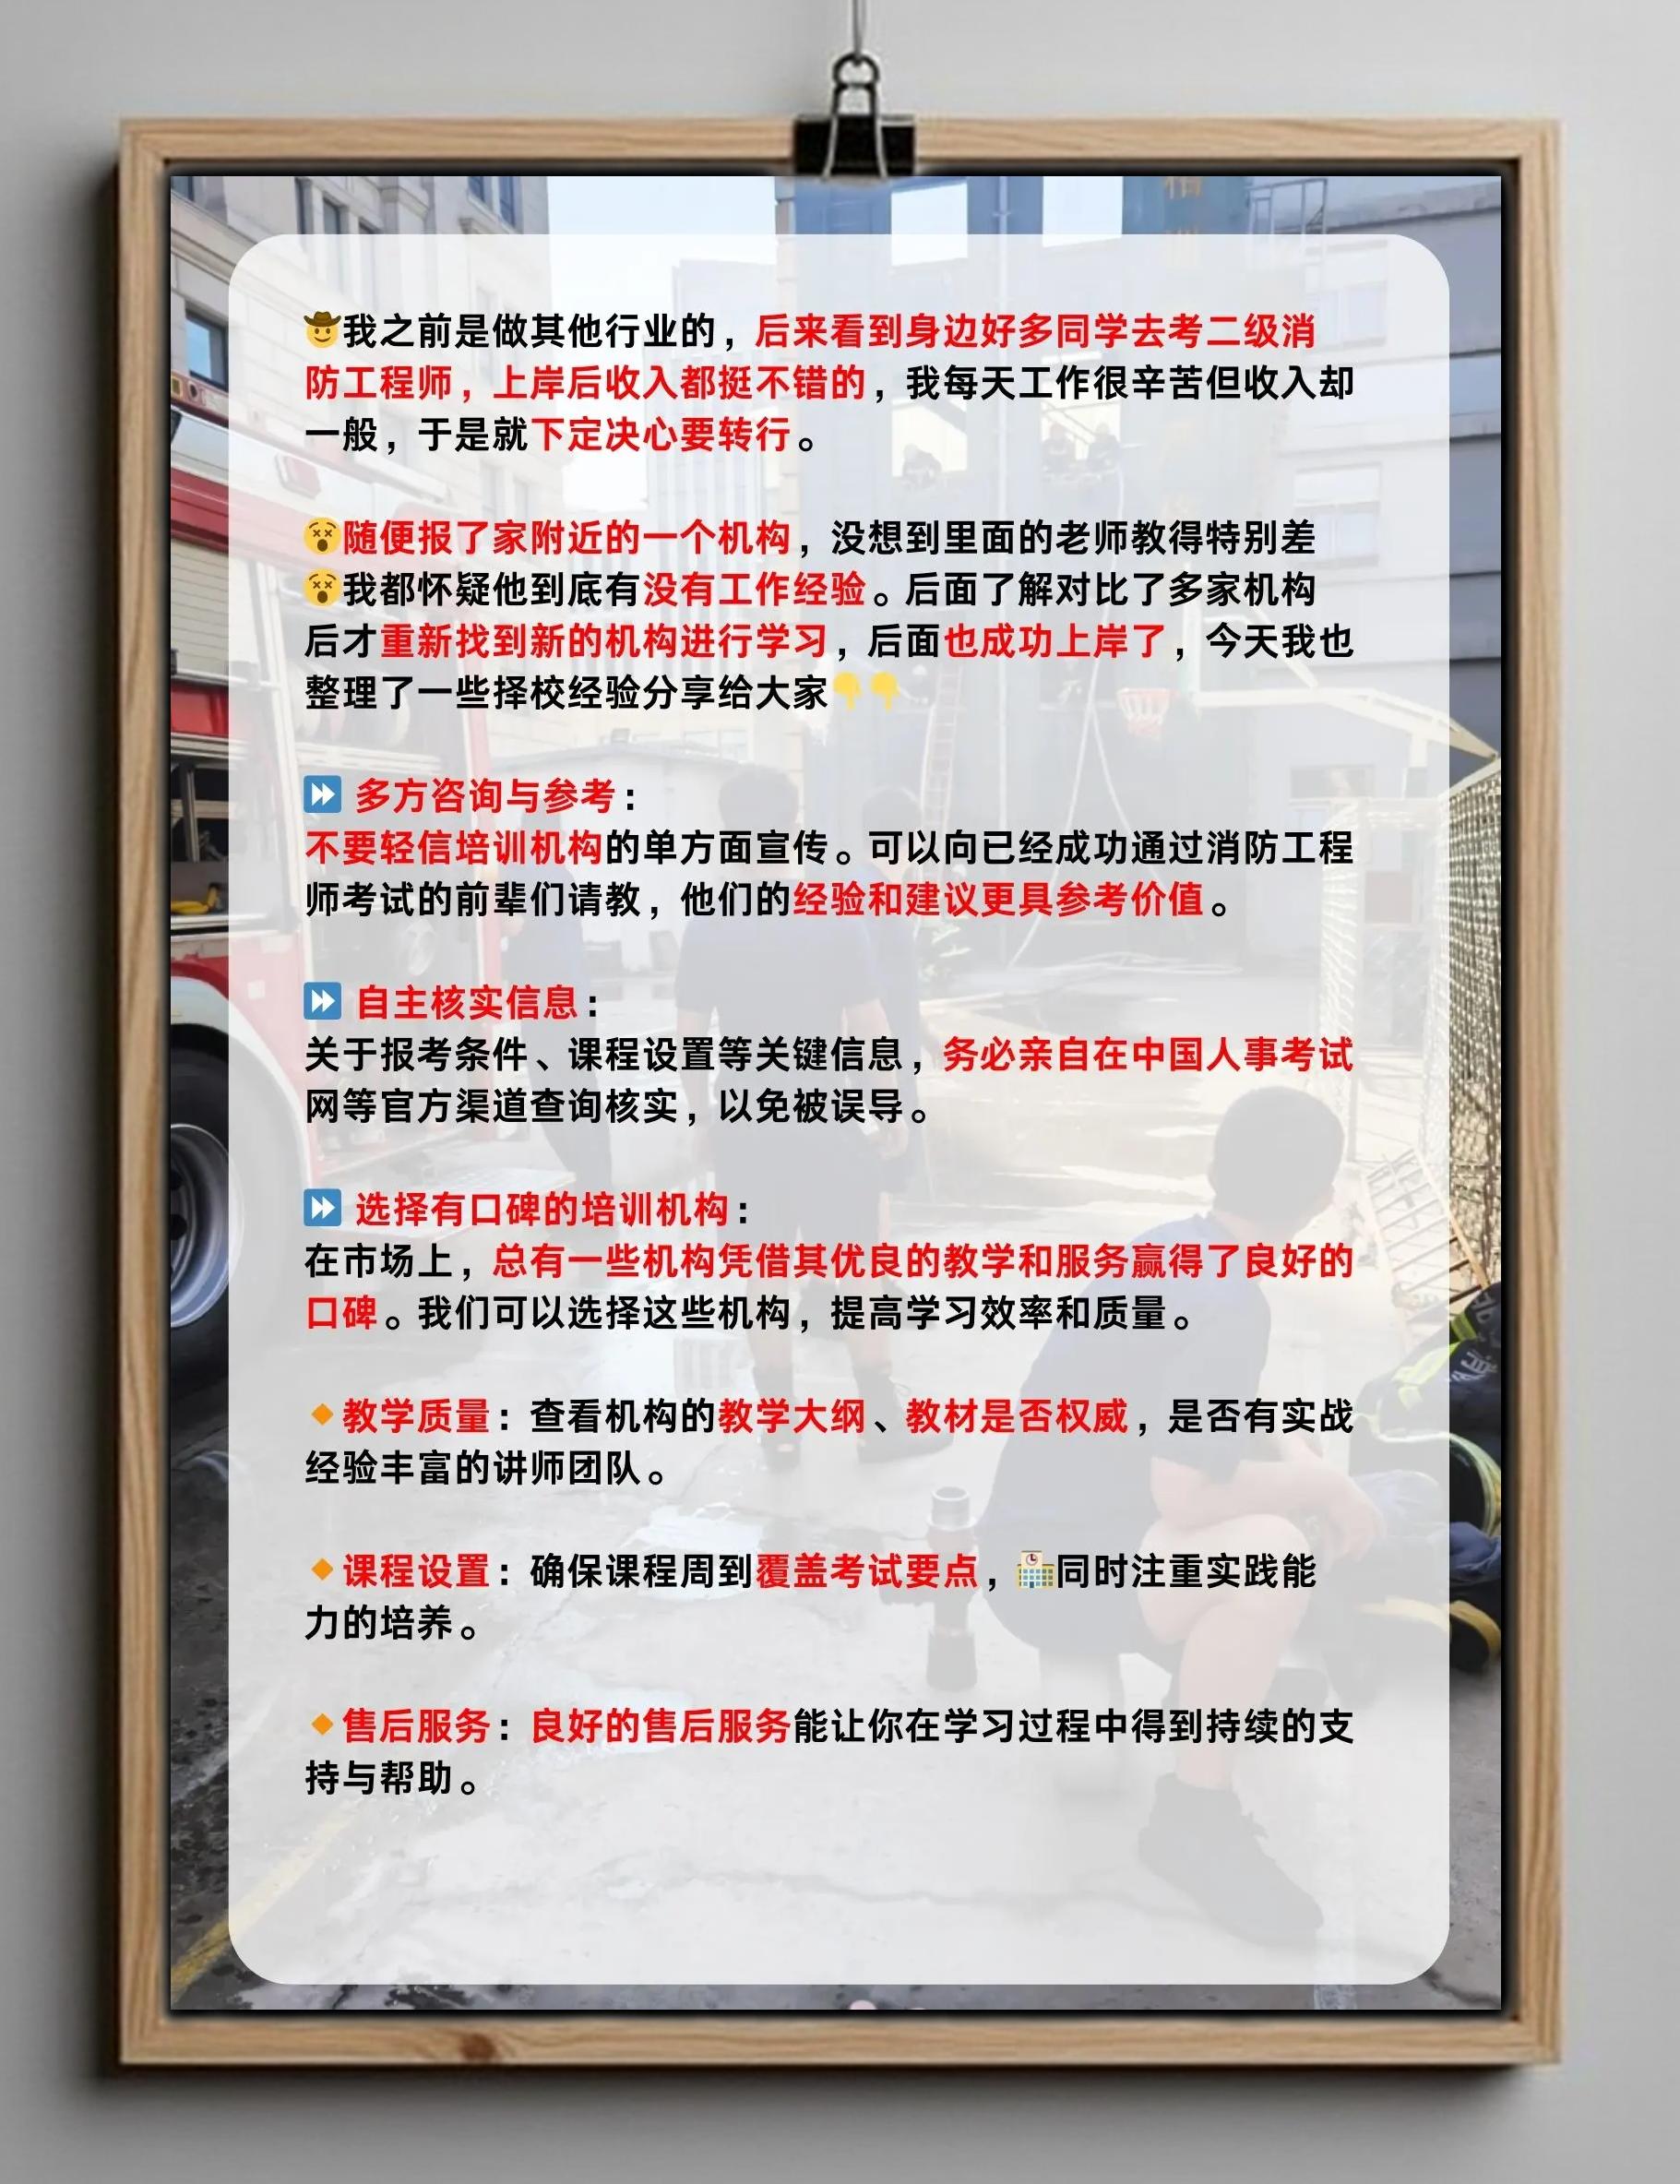 🤠我之前是做其他行业的，后来看到身边好多同学去考二级消
防工程师，上岸后收入都挺不错的，我每天工作很辛苦但收入却
一般，于是就下定决心要转行。
😵随便报了家附近的一个机构，没想到里面的老师教得特别差
😵我都怀疑他到底有没有工作经验。后面了解对比了多家机构
后才重新找到新的机构进行学习，后面也成功上岸了，今天我也
整理了一些择校经验分享给大家👇👇
⏩ 多方咨询与参考：
不要轻信培训机构的单方面宣传。可以向已经成功通过消防工程
师考试的前辈们请教，他们的经验和建议更具参考价值。
⏩ 自主核实信息：
关于报考条件、课程设置等关键信息，务必亲自在中国人事考试
网等官方渠道查询核实，以免被误导。
⏩ 选择有口碑的培训机构：
在市场上，总有一些机构凭借其优良的教学和服务赢得了良好的
口碑。我们可以选择这些机构，提高学习效率和质量。
🔸教学质量：查看机构的教学大纲、教材是否权威，是否有实战
经验丰富的讲师团队。
🔸课程设置：确保课程周到覆盖考试要点，🏫同时注重实践能
力的培养。
🔸售后服务：良好的售后服务能让你在学习过程中得到持续的支
持与帮助。